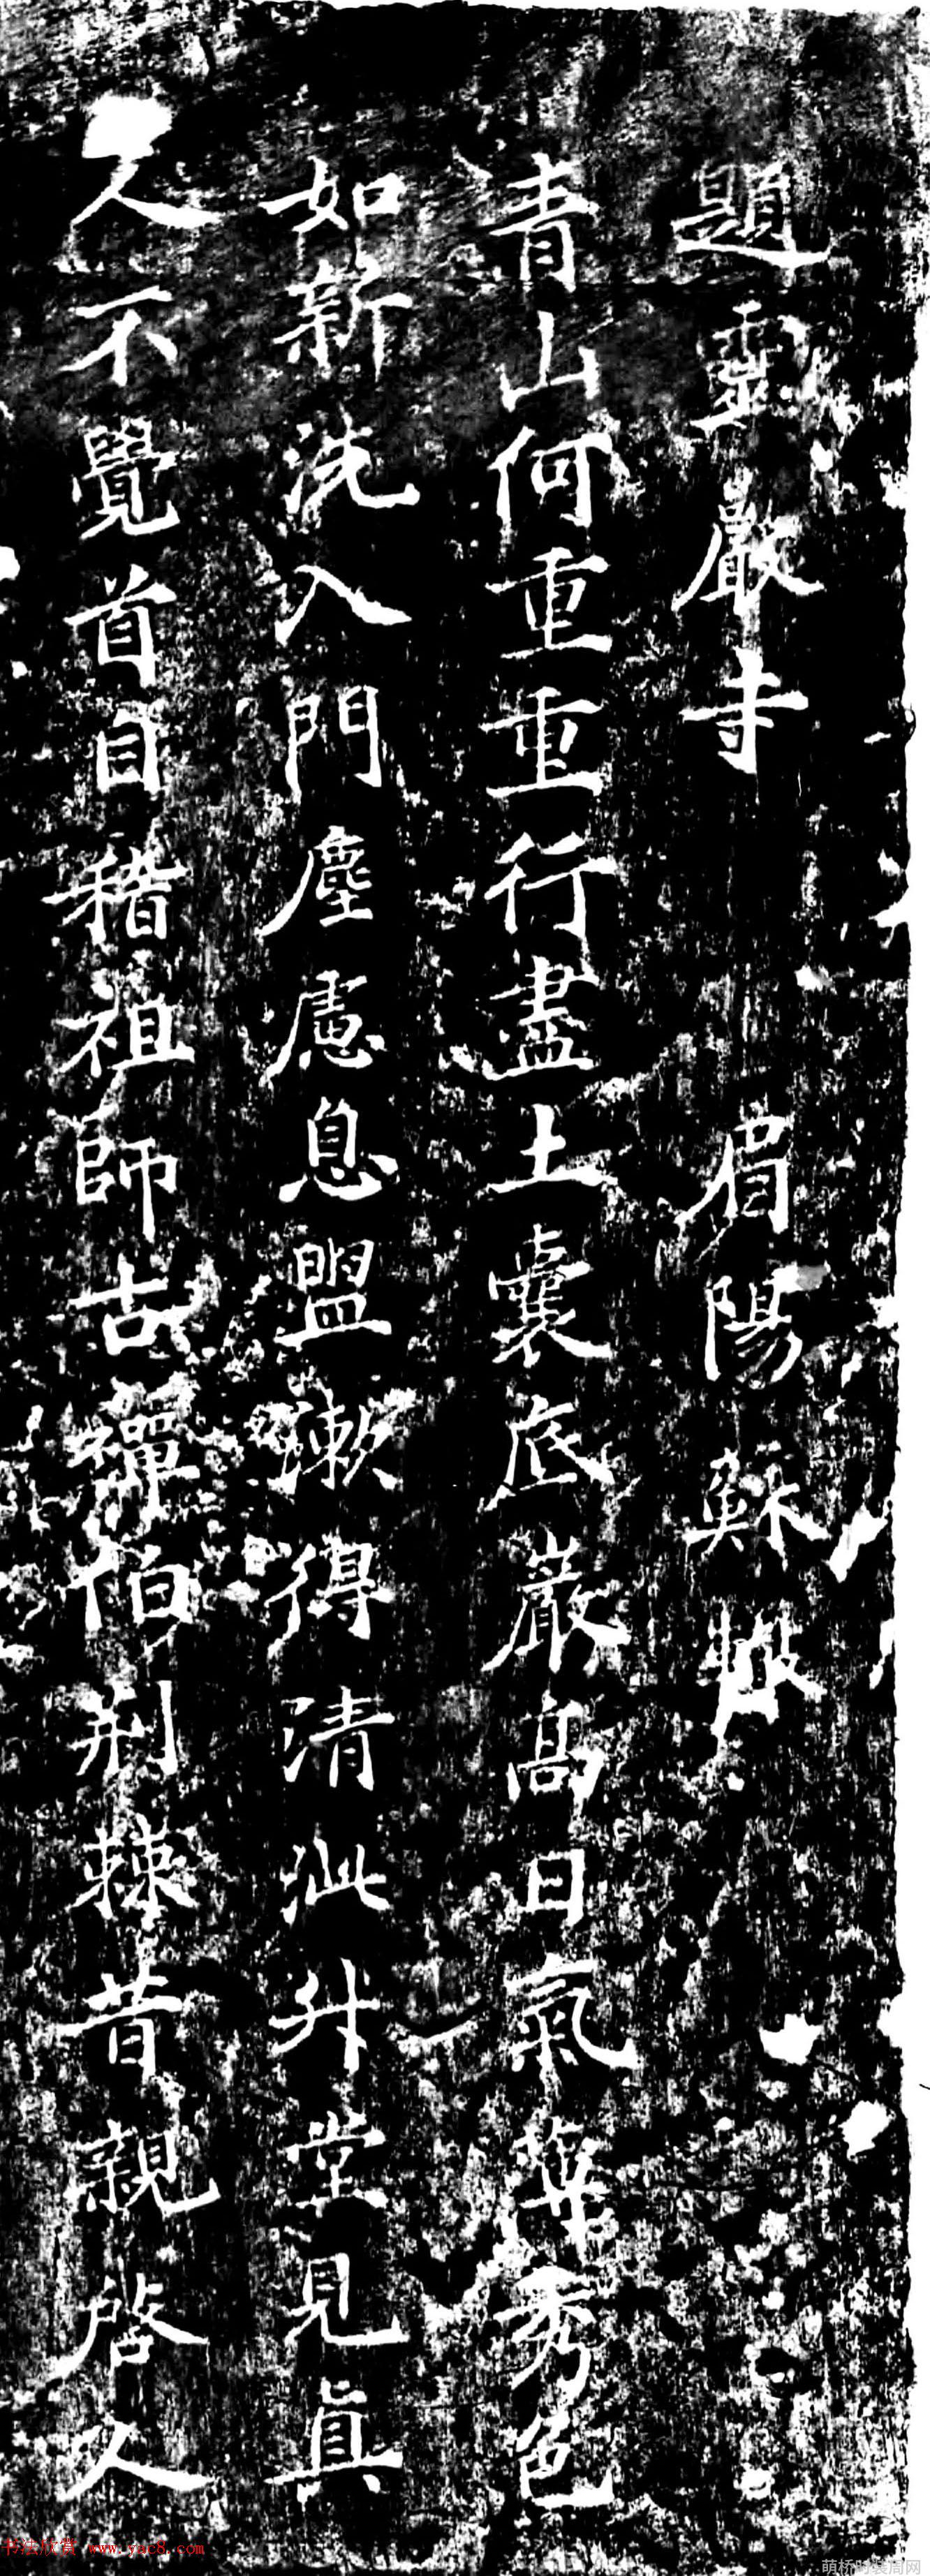 題靈巖寺 眉陽蘇轍
青山何重重行盡土囊底巖高日氣薄秀色
如新洗入門塵慮息盥漱得清泚升堂見真
人不覺首自稽祖師古禪伯荆棘昔親啓人
书法欣赏 www.yac8.com
萌桥时装周网